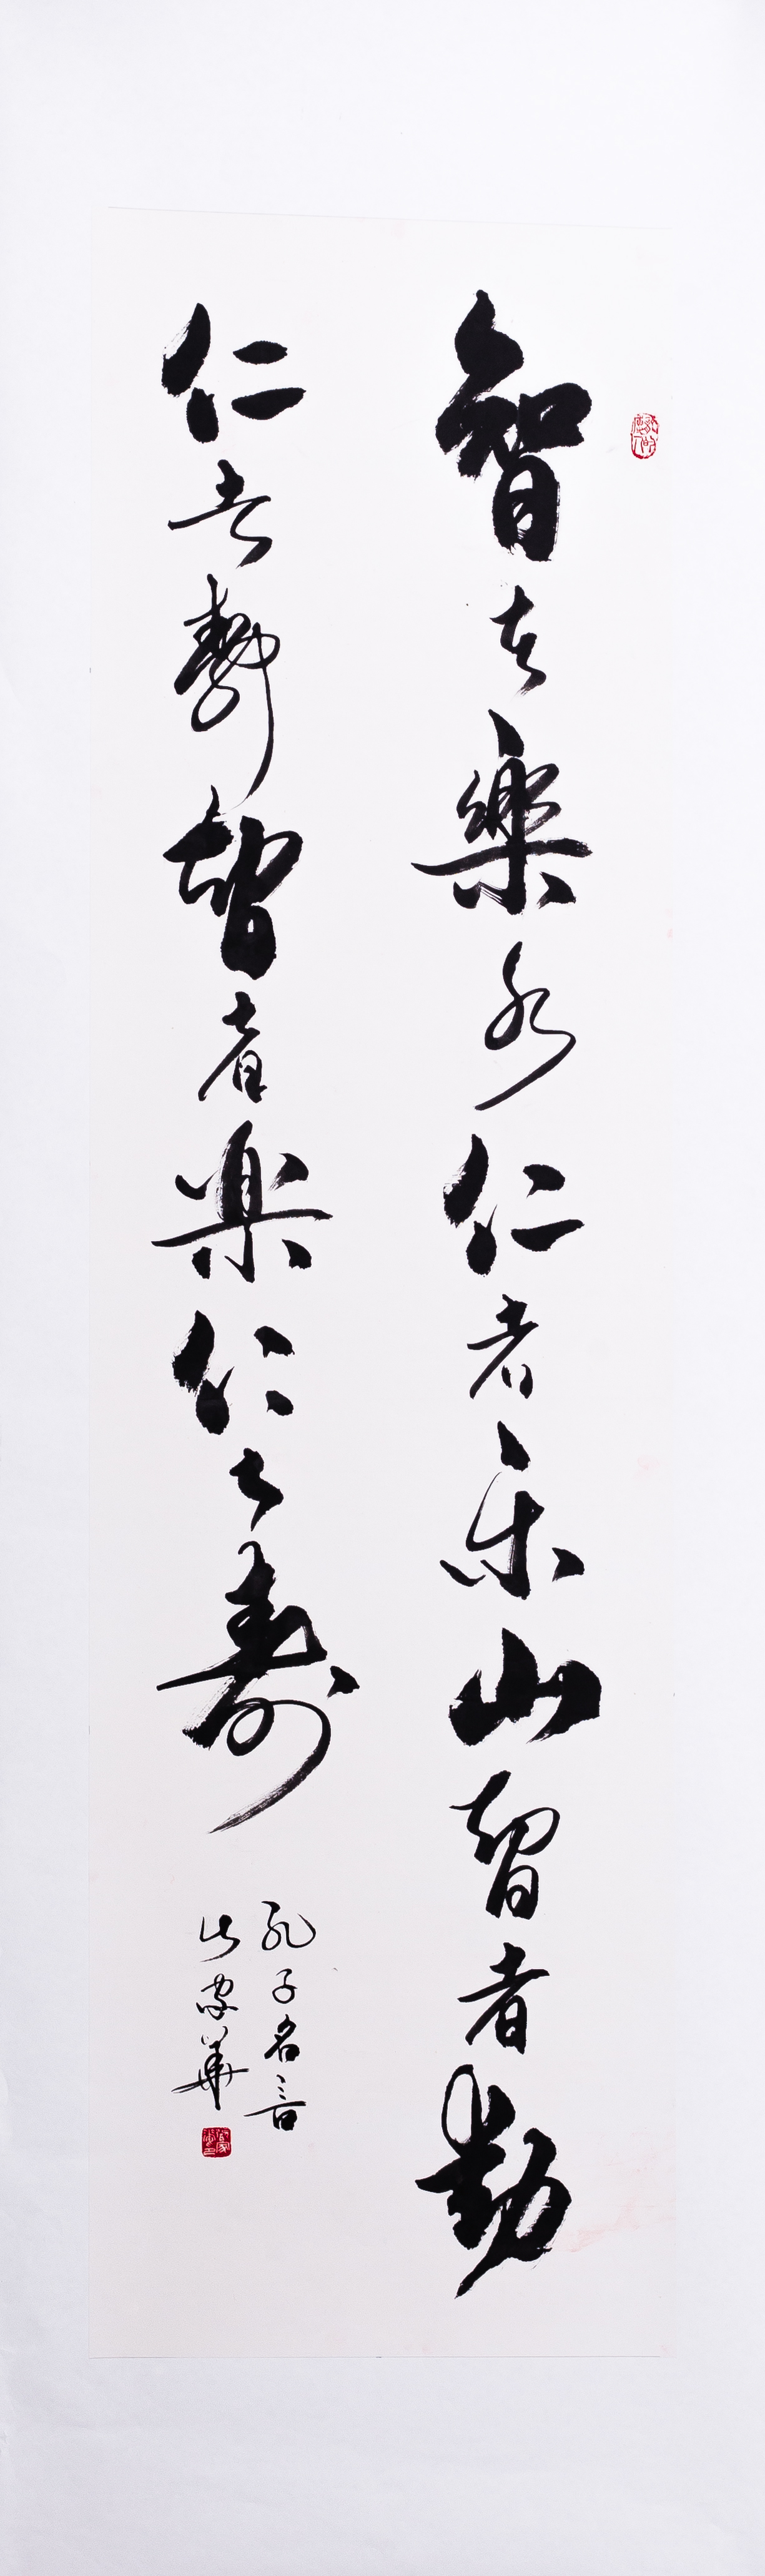 智者樂水仁者乐山智者動
仁者静智者楽仁者壽
孔子名言
家華